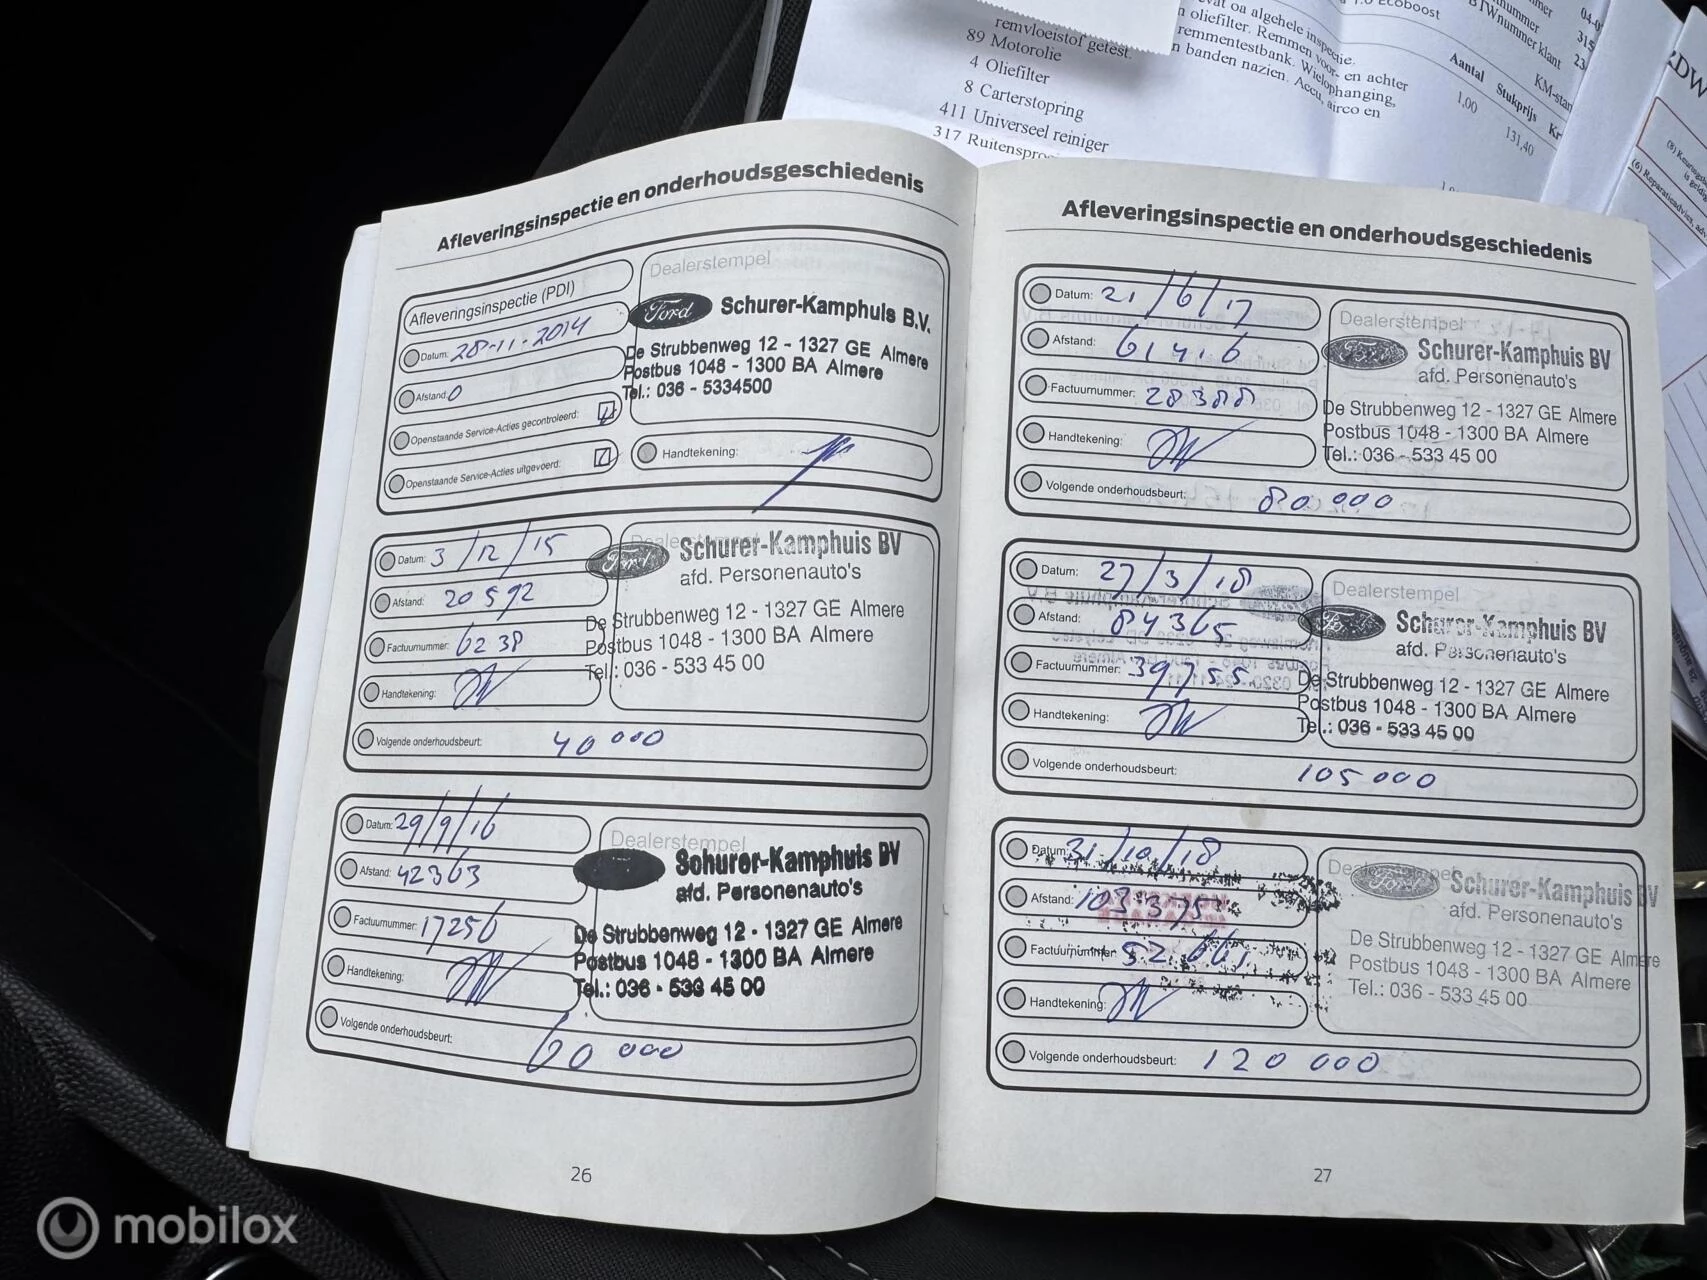 remvloeistof getest.
89 Motorolie
4 Oliefilter
8 Carterstopring
411 Universeel reiniger
317 Ruitenspro
oa algehele inspectie.
oliefilter. Remmen voor- en achter
remmentestbank. Wielophanging,
banden nazien. Accu, airco en
Ecoboost
BTWnummer klant
KM-stan
Aantal Stukprijs Kr
1,00 131,40
RDW
Afleveringsinspectie en onderhoudsgeschiedenis
Afleveringsinspectie (PDI)
Datum: 28-11-2014
Afstand: 0
Openstaande Service-Acties gecontroleerd:
Openstaande Service-Acties uitgevoerd:
Dealerstempel
Ford Schurer-Kamphuis B.V.
De Strubbenweg 12 - 1327 GE Almere
Postbus 1048 - 1300 BA Almere
Tel.: 036 - 5334500
Handtekening:
Datum: 3/12/15
Afstand: 20592
Factuurnummer: 6238
Handtekening:
Volgende onderhoudsbeurt: 40 000
Dealerstempel
Ford Schurer-Kamphuis BV
afd. Personenauto's
De Strubbenweg 12 - 1327 GE Almere
Postbus 1048 - 1300 BA Almere
Tel.: 036 - 533 45 00
Datum: 29/9/16
Afstand: 42363
Factuurnummer: 17256
Handtekening:
Volgende onderhoudsbeurt: 60 000
Dealerstempel
Schurer-Kamphuis BV
afd. Personenauto's
De Strubbenweg 12 - 1327 GE Almere
Postbus 1048 - 1300 BA Almere
Tel.: 036 - 533 45 00
26
Afleveringsinspectie en onderhoudsgeschiedenis
Datum: 21/6/17
Afstand: 61416
Factuurnummer: 28388
Handtekening:
Volgende onderhoudsbeurt: 80 000
Dealerstempel
Ford Schurer-Kamphuis BV
afd. Personenauto's
De Strubbenweg 12 - 1327 GE Almere
Postbus 1048 - 1300 BA Almere
Tel.: 036 - 533 45 00
Datum: 27/3/18
Afstand: 84365
Factuurnummer: 39755
Handtekening:
Volgende onderhoudsbeurt: 105 000
Dealerstempel
Ford Schurer-Kamphuis BV
afd. Personenauto's
De Strubbenweg 12 - 1327 GE Almere
Postbus 1048 - 1300 BA Almere
Tel.: 036 - 533 45 00
Datum: 31/10/18
Afstand: 103 375
Factuurnummer:
Handtekening:
Volgende onderhoudsbeurt: 120 000
Dealerstempel
Ford Schurer-Kamphuis BV
afd. Personenauto's
De Strubbenweg 12 - 1327 GE Almere
Postbus 1048 - 1300 BA Almere
Tel.: 036 - 533 45 00
27
mobilox